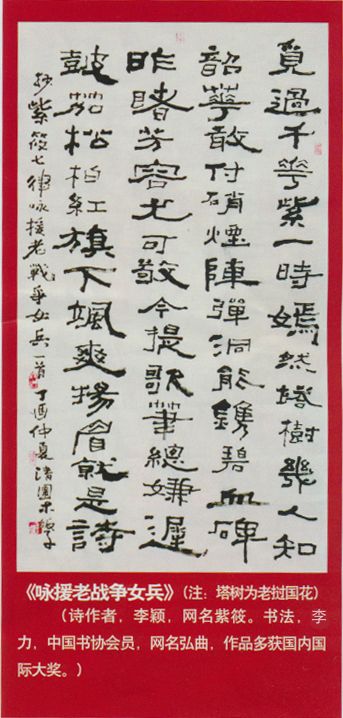 覓過千華紫一時嫣然塔樹幾人知
韶華敢付硝煙陣彈洞能鐫碧血碑
昨睹芳容尤可敬今提歌筆總嫌遲
鼓笳松柏紅旗下颯爽揚眉就是詩
抄紫筱七律咏援老戰爭女兵一首丁酉仲夏清園木
《咏援老战争女兵》（注：塔树为老挝国花）
（诗作者，李颖，网名紫筱。书法，李
力，中国书协会员，网名弘曲，作品多获国内国
际大奖。）